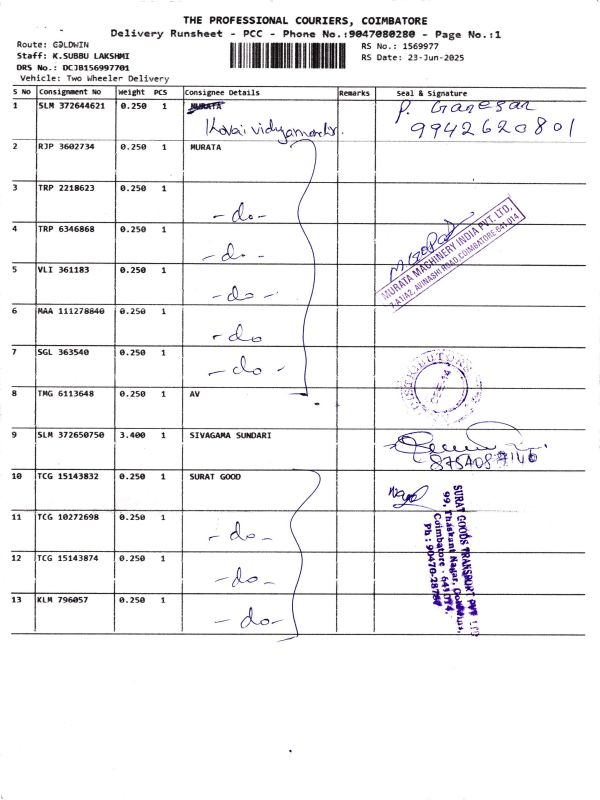 THE PROFESSIONAL COURIERS, COIMBATORE
Delivery Runsheet - PCC - Phone No.:9047080280 - Page No.:1
Route: GOLDWIN RS No.: 1569977
Staff: K.SUBBU LAKSHMI RS Date: 23-Jun-2025
DRS No.: DCJB156997701
Vehicle: Two Wheeler Delivery
S No Consignment No Weight PCS Consignee Details Remarks Seal & Signature
1 SLM 372644621 0.250 1 MURATA P. Ganesan
Kovai vidyamandir. 9942620801
2 RJP 3602734 0.250 1 MURATA
3 TRP 2218623 0.250 1
-do-
4 TRP 6346868 0.250 1
-do-
MURATA MACHINERY INDIA PVT. LTD.
7-A1/A2, AVINASHI ROAD, COIMBATORE-641 014
5 VLI 361183 0.250 1
-do-
6 MAA 111278840 0.250 1
-do
7 SGL 363540 0.250 1
-do-
8 TMG 6113648 0.250 1 AV
9 SLM 372650750 3.400 1 SIVAGAMA SUNDARI
10 TCG 15143832 0.250 1 SURAT GOOD
SURAT GOODS TRANSPORT PVT LTD
99, Thaskant Nagar,
Coimbatore - 641014.
11 TCG 10272698 0.250 1
-do-
12 TCG 15143874 0.250 1
-do-
13 KLM 796057 0.250 1
-do-